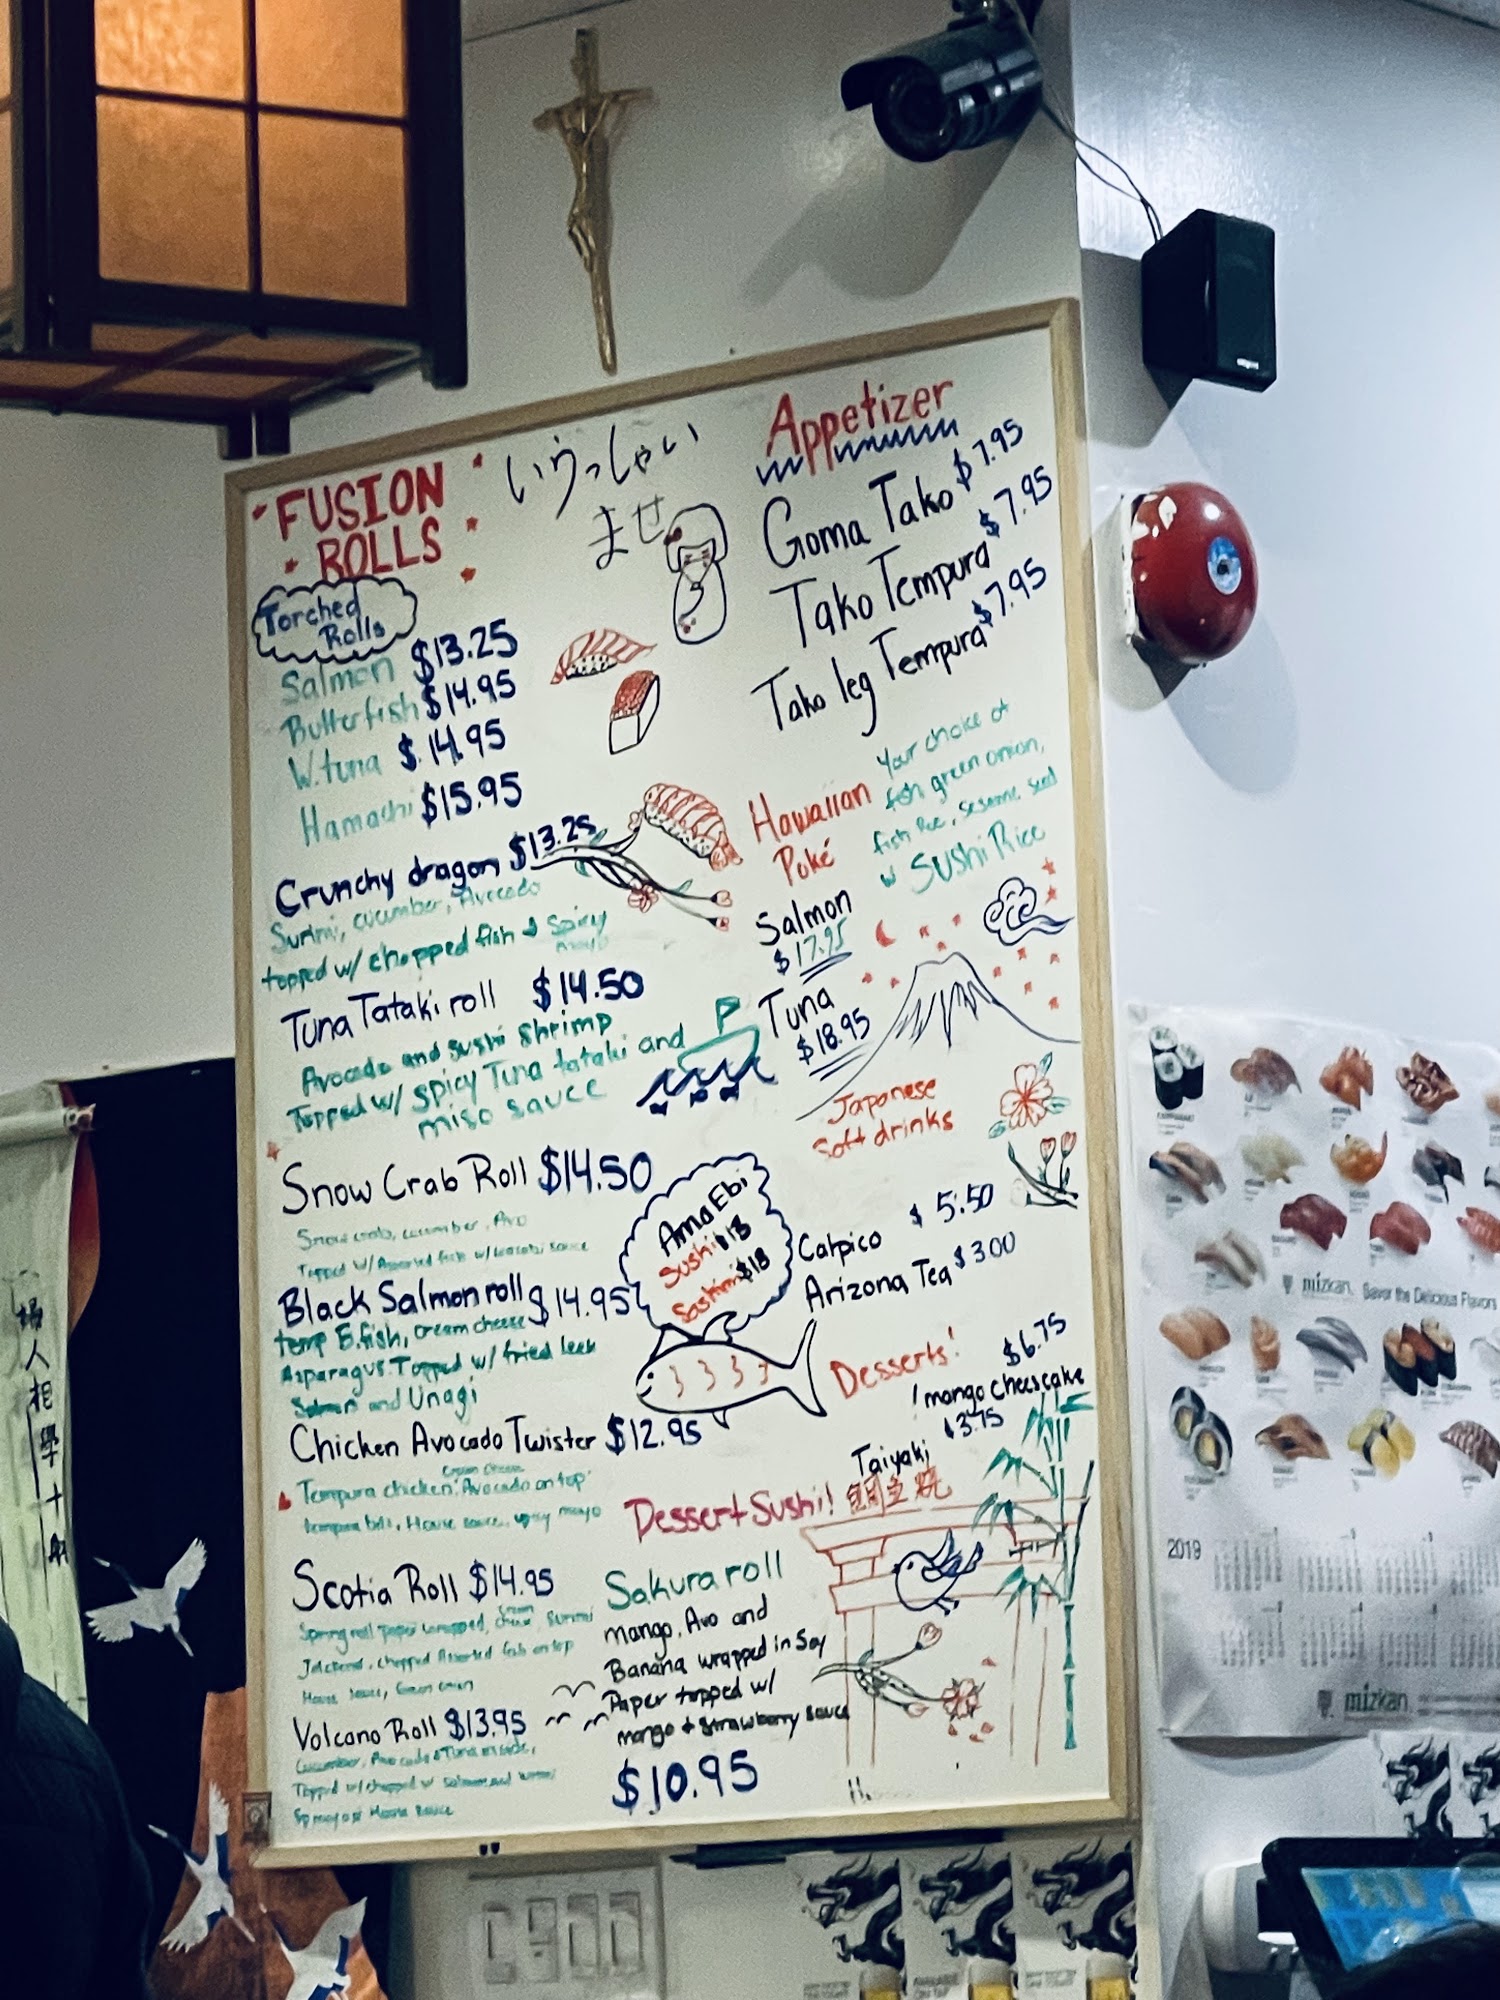 FUSION
ROLLS
いらっしゃい
ませ
Torched
Rolls
Salmon $13.25
Butterfish $14.95
W.tuna $.14.95
Hamachi $15.95
Crunchy dragon $13.25
Surimi, cucumber, Avocado
topped w/ chopped fish & Spicy
mayo
Tuna Tataki roll $14.50
Avocado and sushi shrimp
Topped w/ spicy Tuna tataki and
miso sauce
Snow Crab Roll $14.50
Snow crab, cucumber, Avo
Topped w/ Assorted fish w/ wasabi sauce
Black Salmon roll $14.95
temp B.fish, cream cheese
Asparagus Topped w/ fried leek
Salmon and Unagi
Chicken Avocado Twister $12.95
Cream Cheese
Tempura chicken, Avocado on top
tempura bits, House sauce, spicy mayo
Scotia Roll $14.95
Spring roll paper wrapped, cream cheese, Surimi
chopped Assorted fish on top
House sauce, Green onion
Volcano Roll $13.95
Cucumber, Avocado & Tuna inside,
Topped w/ chopped w Salmon and
House sauce
Appetizer
Goma Tako $7.95
Tako Tempura $7.95
Tako leg Tempura $7.95
Hawaiian
Poké
Your choice of
fish green onion,
fish roe, sesame seed
w SUSHi Rice
Salmon
$17.95
Tuna
$18.95
Japanese
Soft drinks
Calpico $5.50
Arizona Tea $3.00
Ama Ebi
Sushi $13
Sashimi $18
Desserts!
$6.75
mango cheescake
$3.75
Taiyaki
Dessert Sushi!
Sakura roll
mango, Avo and
Banana wrapped in Soy
Paper topped w/
mango & strawberry sauce
$10.95
婦人相學十躰
mizkan. Savor the Delicious Flavors
2019
mizkan